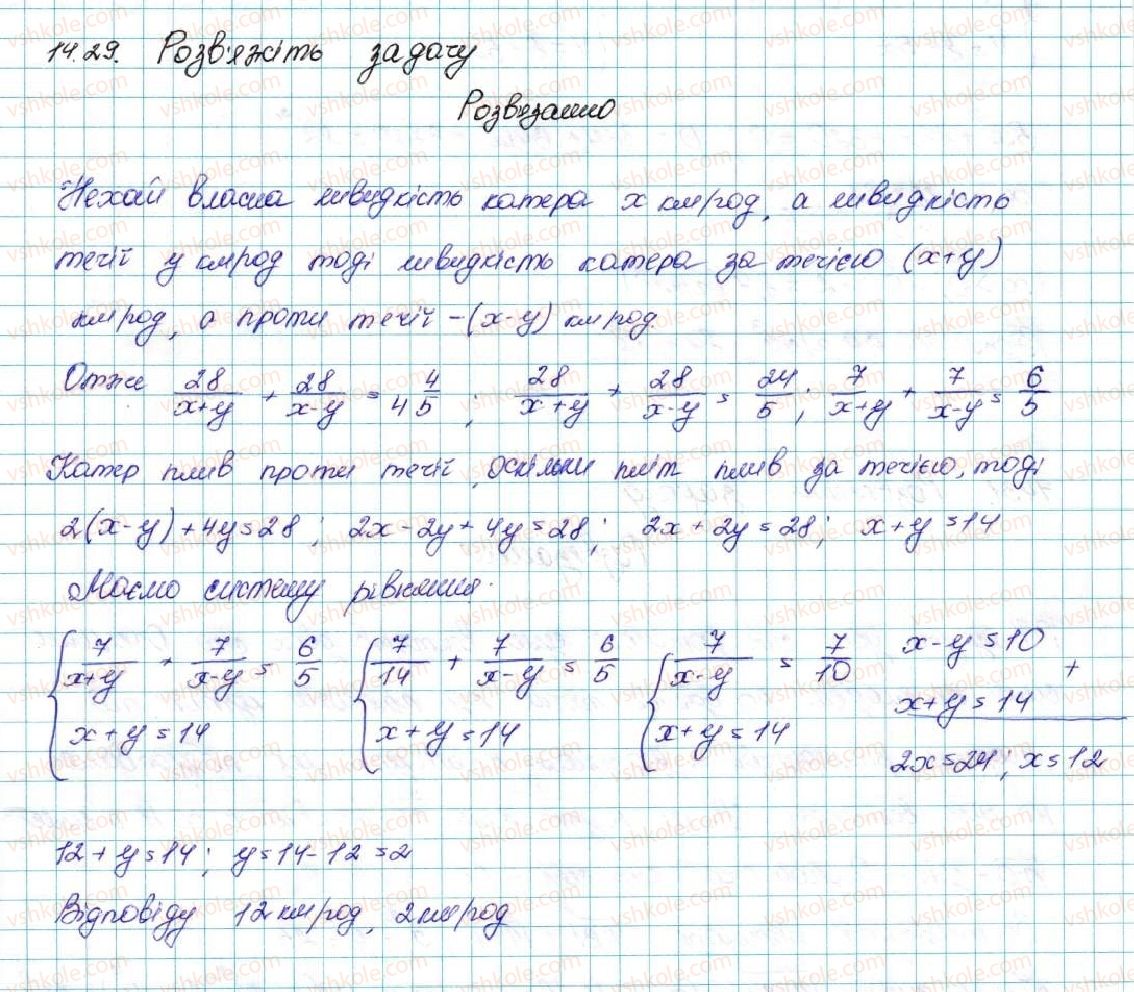 14.29. Розв'яжіть задачу
Розв'язання
Нехай власна швидкість катера x км/год, а швидкість
течії y км/год тоді швидкість катера за течією (x+y)
км/год, а проти течії -(x-y) км/год.
Отже 28/(x+y) + 28/(x-y) = 4 4/5 ; 28/(x+y) + 28/(x-y) = 24/5 ; 7/(x+y) + 7/(x-y) = 6/5
Катер плив проти течії, оскільки пліт плив за течією, тоді
2(x-y)+4y=28 ; 2x-2y+4y=28 ; 2x+2y=28 ; x+y=14
Маємо систему рівняння.
{ 7/(x+y) + 7/(x-y) = 6/5 { 7/14 + 7/(x-y) = 6/5 { 7/(x-y) = 7/10 x-y=10 +
x+y=14 x+y=14 x+y=14 x+y=14
2x=24 ; x=12
12+y=14 ; y=14-12=2
Відповіду 12 км/год, 2 км/год